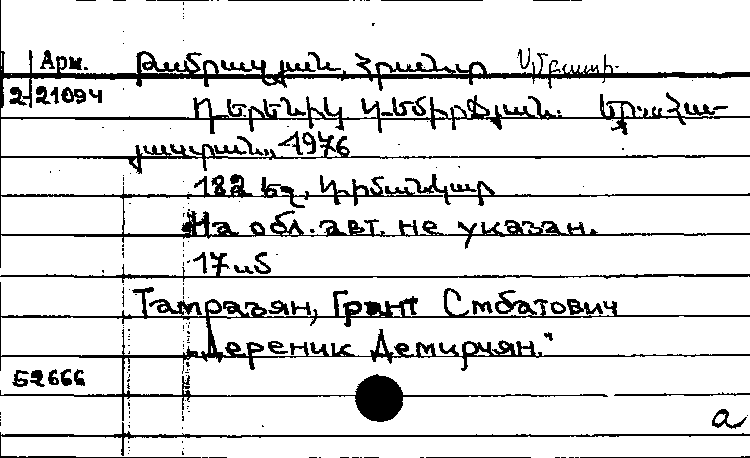 Арм. Թամրազյան, Հրանտ Սմբատի.
2-21094
Դերենիկ Դեմիրճյան. Եր., „Հա-
յաստան„, 1976
182 եջ, դիմանկար
На обл. авт. не указан.
17 սմ
Тамразян, Грант Смбатович
„Дереник Демирчян."
52666
a